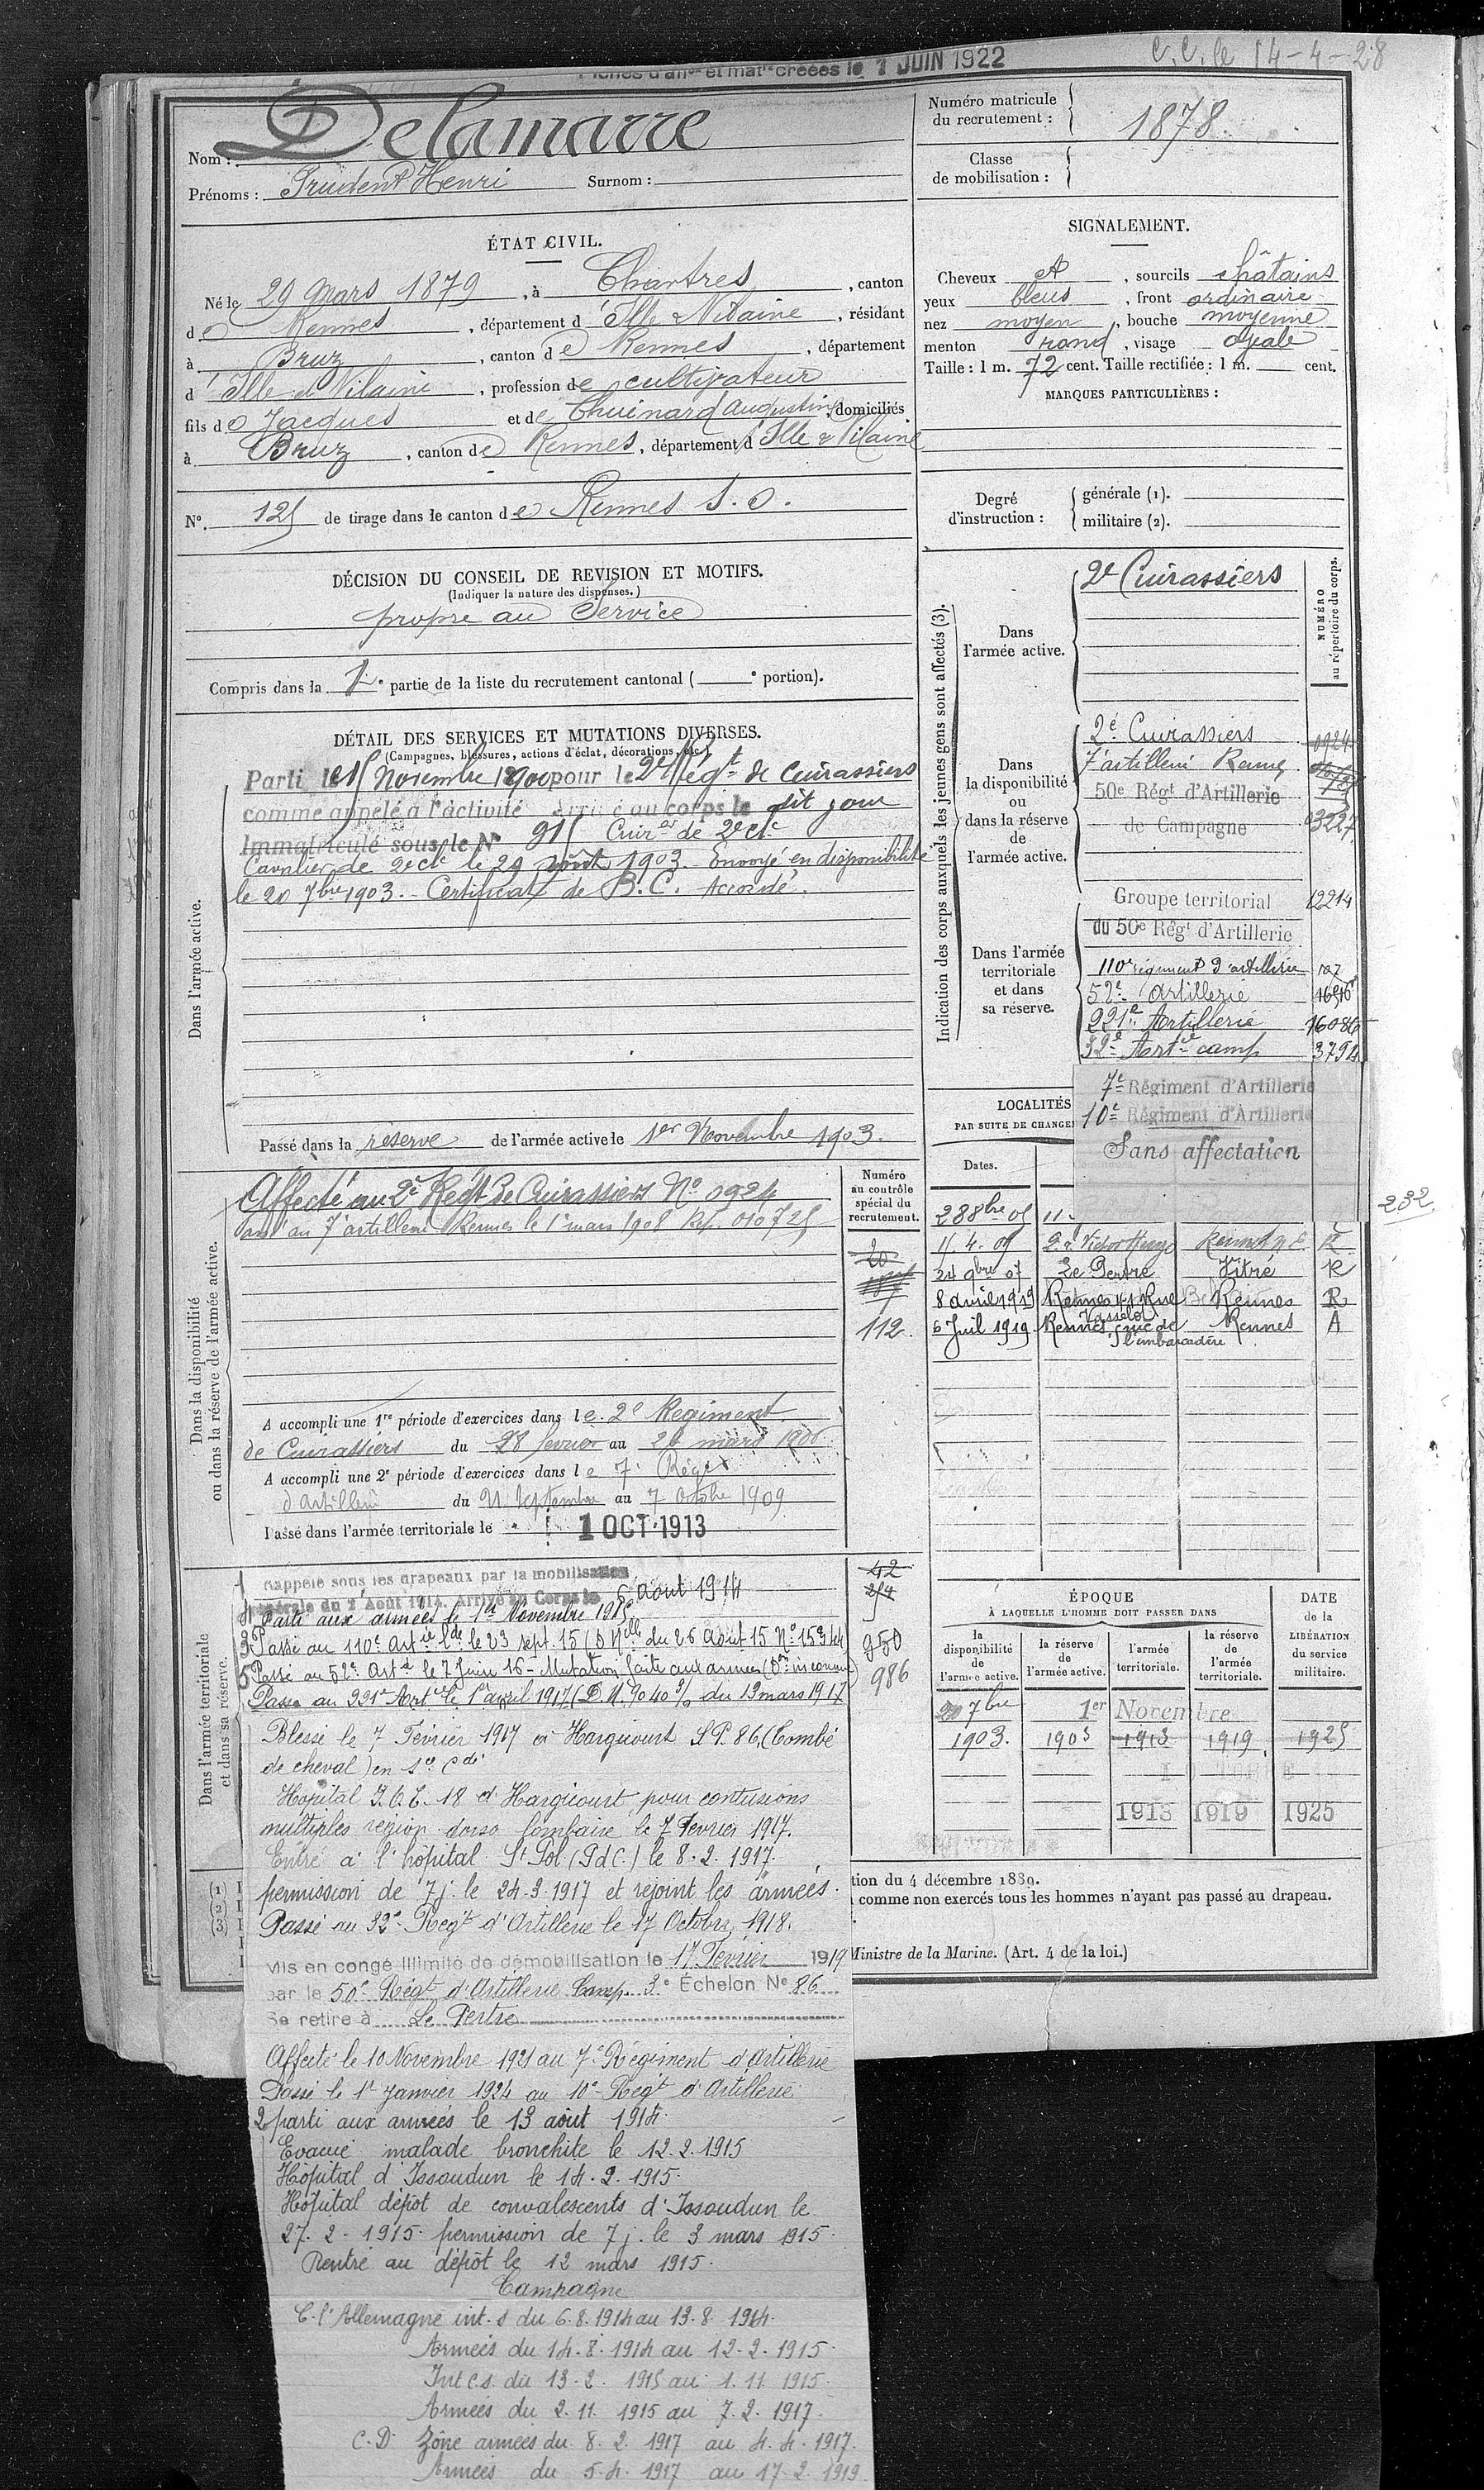 Fiches d'aff.on et mat.le créées le 1 JUIN 1922
C.C. le 14-4-28
Nom : Delamarre
Prénoms : Prudent Henri Surnom :
Numéro matricule du recrutement : 1878
Classe de mobilisation :
ÉTAT CIVIL.
Né le 29 Mars 1879, à Chartres, canton
de Rennes, département d'Ille & Vilaine, résidant
à Bruz, canton de Rennes, département
d'Ille et Vilaine, profession de cultivateur
fils de Jacques et de Thuinard Augustine, domiciliés
à Bruz, canton de Rennes, département d'Ille & Vilaine
N°. 125 de tirage dans le canton de Rennes S.O.
SIGNALEMENT.
Cheveux et, sourcils châtains
yeux bleus, front ordinaire
nez moyen, bouche moyenne
menton rond, visage ovale
Taille : 1 m. 72 cent. Taille rectifiée : 1 m. cent.
MARQUES PARTICULIÈRES :
Degré d'instruction : générale (1).
militaire (2).
DÉCISION DU CONSEIL DE REVISION ET MOTIFS.
(Indiquer la nature des dispenses.)
propre au Service
Compris dans la 1e partie de la liste du recrutement cantonal ( e portion).
DÉTAIL DES SERVICES ET MUTATIONS DIVERSES.
(Campagnes, blessures, actions d'éclat, décorations, etc.)
Dans l'armée active.
Parti le 15 Novembre 1900 pour le 2e Régt de Cuirassiers
comme appelé à l'activité Arrivé au corps le dit jour
Immatriculé sous le N° 915 Cuirer de 2e cl.
Cavalier de 2e cl. le 29 août 1903. Envoyé en disponibilité
le 20 7bre 1903. - Certificat de B.C. Accordé.
Passé dans la réserve de l'armée active le 1er Novembre 1903.
Indication des corps auxquels les jeunes gens sont affectés (3).
NUMÉRO au répertoire du corps.
Dans l'armée active.
2e Cuirassiers
Dans la disponibilité ou dans la réserve de l'armée active.
2e Cuirassiers 0924
7e artillerie Rennes
50e Régt d'Artillerie
de Campagne 03227
Dans l'armée territoriale et dans sa réserve.
Groupe territorial 12214
du 50e Régt d'Artillerie
110e régiment d'artillerie 107
52e Artillerie 16516
221e Artillerie 16086
32e Artie camp 3794
7e Régiment d'Artillerie
10e Régiment d'Artillerie
Sans affectation
232
LOCALITÉS
PAR SUITE DE CHANGE
Dates.
28 8bre 05 11
15.4.09 R. Victor Hugo Rennes N.E. R
24 9bre 07 Le Pertre Vitré R
8 avril 1919 Rennes 41 Rue Vasselot Rennes R
6 Juil 1919 Rennes rue de l'embarcadère Rennes A
Numéro au contrôle spécial du recrutement.
20
112.
Dans la disponibilité ou dans la réserve de l'armée active.
Affecté au 2e Régt de Cuirassiers N° 0924
au 7e artillerie Rennes le 1er mars 1908 Rep. 010725
A accompli une 1re période d'exercices dans le 2e Régiment
de Cuirassiers du 28 février au 26 mars 1906.
A accompli une 2e période d'exercices dans le 7e Régt
d'artillerie du 21 Septembre au 7 Octobre 1909
Passé dans l'armée territoriale le 1 OCT. 1913
Dans l'armée territoriale et dans sa réserve.
42
254
950
986
1 Rappelé sous les drapeaux par la mobilisation
générale du 2 Août 1914. Arrivé au Corps le 6 Août 1914
Parti aux armées le 1er Novembre 1915
3 Passé au 110e Artie Lde le 23 sept. 15 (D Nelle du 26 Août 15 N° 15344
5 Passé au 52e Artie le 7 Juin 16 - Mutation faite aux armées (Don inconnue)
Passé au 221e Artie le 1er avril 1917 (D.M. 9040 3/3 du 13 mars 1917
Blessé le 7 Février 1917 à Hargicourt S.P. 86, (Tombé
de cheval) en Sce Cdé
Hôpital H.O.E. 18 d'Hargicourt pour contusions
multiples région dorso lombaire le 7 Février 1917.
Entré à l'hôpital St Pol (P d C.) le 8.2.1917.
permission de 7 j. le 24.3.1917 et rejoint les armées.
Passé au 32e Régt d'Artillerie le 17 Octobre 1918.
Mis en congé illimité de démobilisation le 17 Février 1919
par le 50e Régt d'Artillerie Camp. 3e Échelon N° 86
Se retire à Le Pertre
Affecté le 10 Novembre 1921 au 7e Régiment d'Artillerie
Passé le 1er Janvier 1924 au 10e Régt d'Artillerie
2 parti aux armées le 13 août 1914.
Evacué malade bronchite le 12.2.1915
Hôpital d'Issoudun le 14.2.1915.
Hôpital dépôt de convalescents d'Issoudun le
27.2.1915. permission de 7 j. le 3 mars 1915.
Rentré au dépôt le 12 mars 1915.
Campagne
C. l'Allemagne int. s du 6.8.1914 au 13.8.1914.
Armées du 14.8.1914 au 12.2.1915.
Int c.s. du 13.2.1915 au 1.11.1915.
Armées du 2.11.1915 au 7.2.1917.
C.D. Zône armées du 8.2.1917 au 4.4.1917.
Armées du 5.4.1917 au 17.2.1919
ÉPOQUE
À LAQUELLE L'HOMME DOIT PASSER DANS
la disponibilité de l'armée active.
la réserve de l'armée active.
l'armée territoriale.
la réserve de l'armée territoriale.
DATE de la LIBÉRATION du service militaire.
20 7bre 1er Novembre
1903. 1903 1913 1919 1925
1913 1919 1925
(1)
(2)
(3)
tion du 4 décembre 1889.
comme non exercés tous les hommes n'ayant pas passé au drapeau.
Ministre de la Marine. (Art. 4 de la loi.)